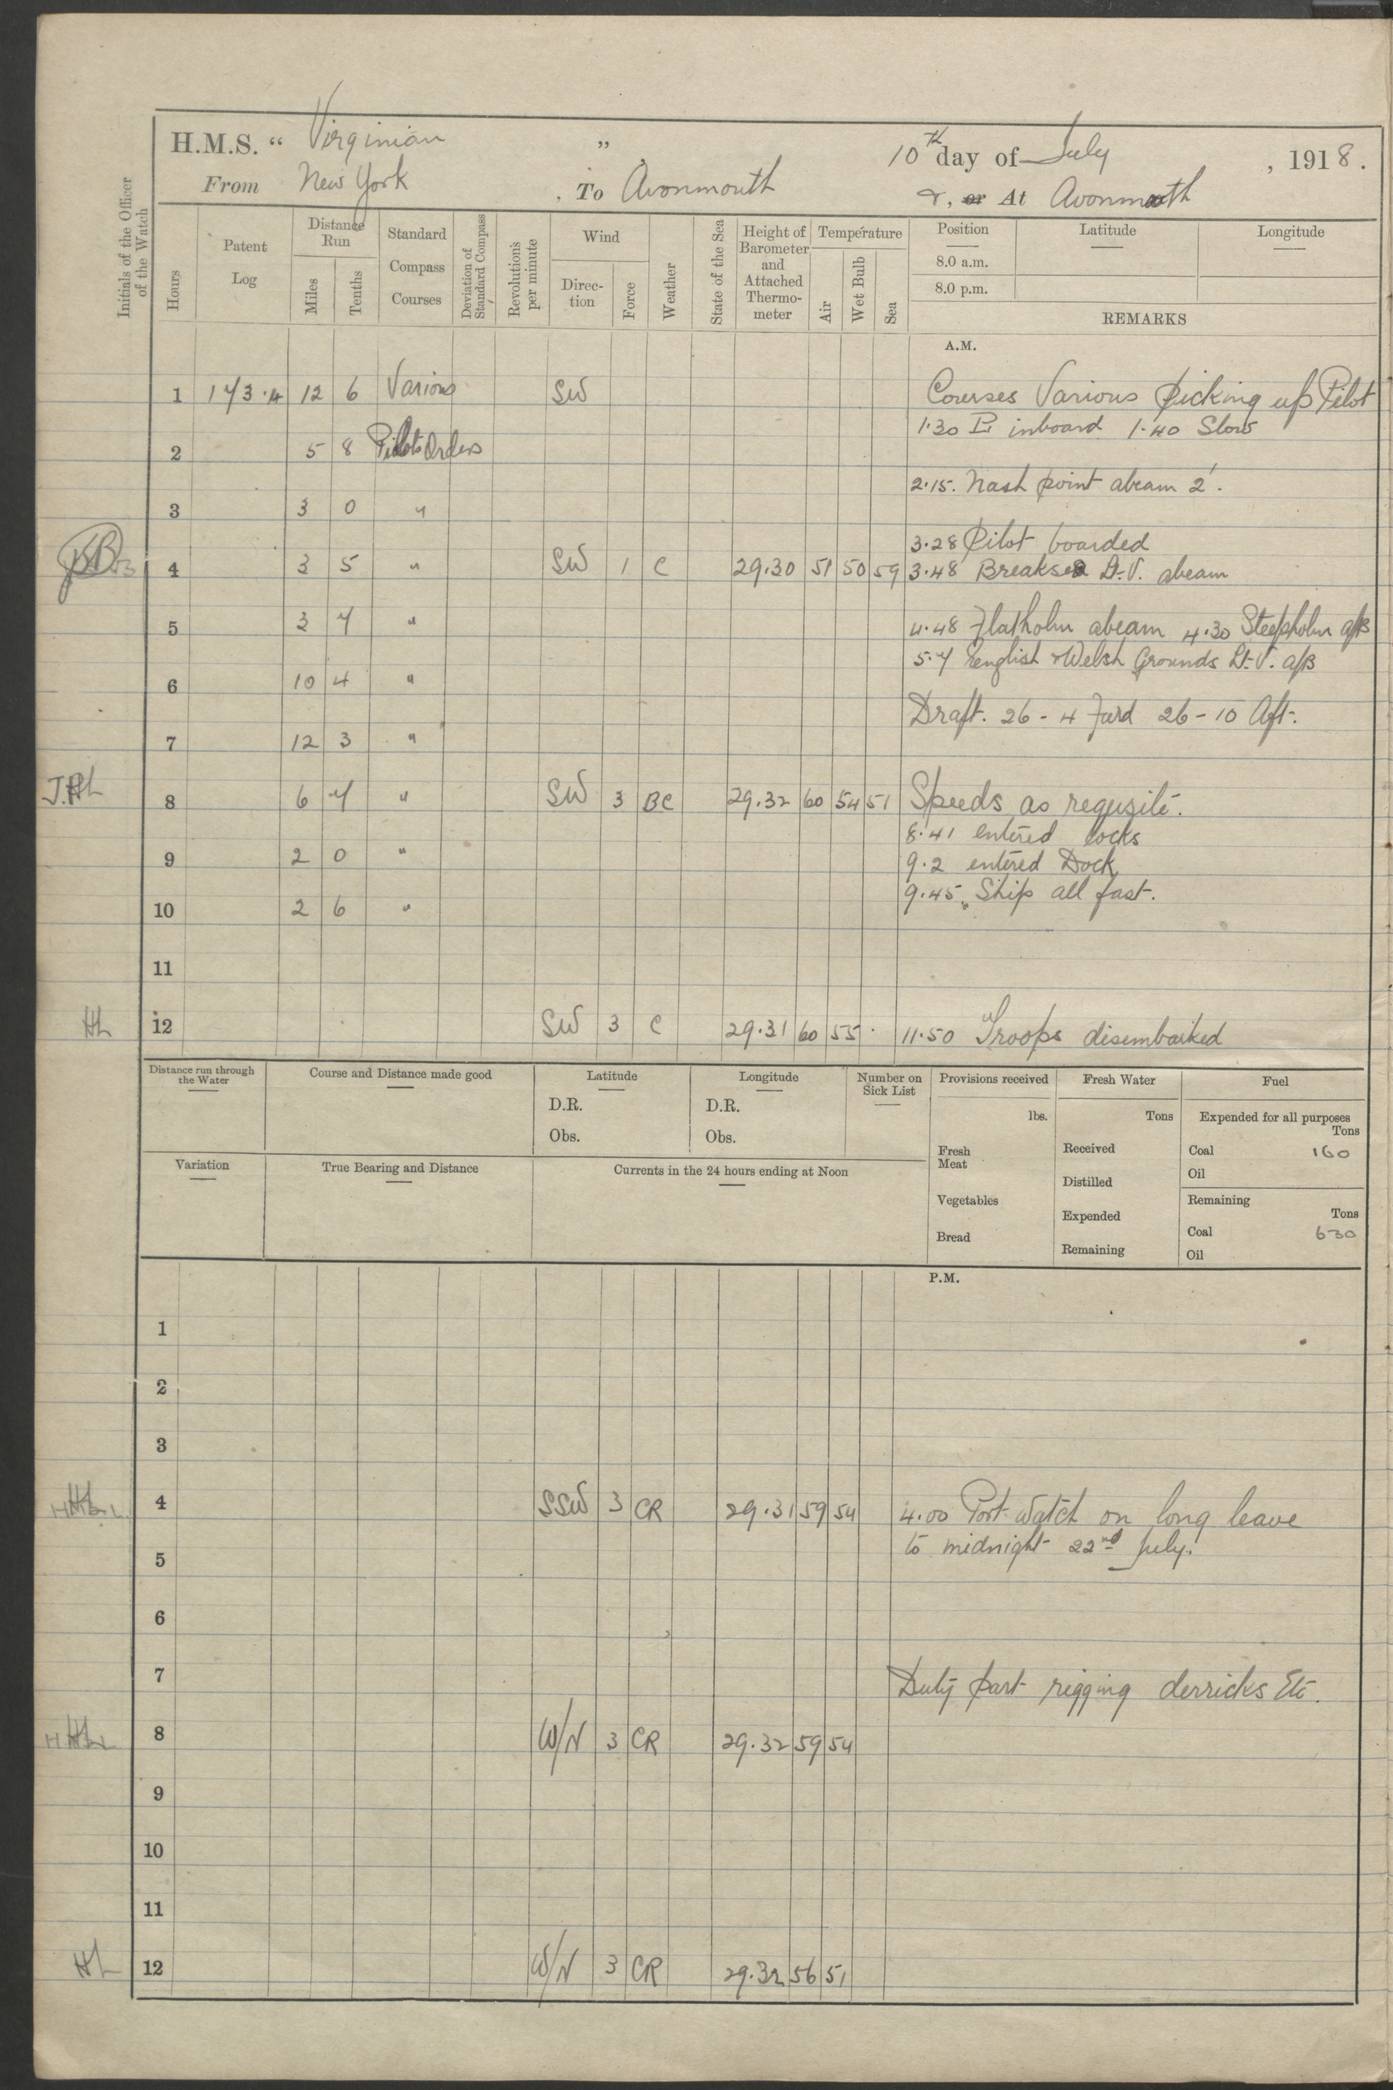 H.M.S. “ Virginian ” 10th day of July , 1918.
From New York . To Avonmouth &, or At Avonmouth
Initials of the Officer of the Watch
Hours
Patent Log
Distance Run
Miles
Tenths
Standard Compass Courses
Deviation of Standard Compass
Revolutions per minute
Wind
Direction
Force
Weather
State of the Sea
Height of Barometer and Attached Thermometer
Temperature
Air
Wet Bulb
Sea
Position Latitude Longitude
8.0 a.m.
8.0 p.m.
REMARKS
A.M.
1 173.4 12 6 Various SW Courses Various picking up Pilot
1.30 inboard 1.40 Slow
2 5 8 Pilots Orders
2.15. Nash point abeam 2'.
3 3 0 "
3.28 Pilot boarded
4 3 5 " SW 1 C 29.30 51 50 59 3.48 Breaksea Lt. V. abeam
5 3 7 " 4.48 Flatholm abeam 4.30 Steepholm a/B
5.7 English & Welsh Grounds Lt. V. a/B
6 10 4 "
Draft. 26 - 4 Furd 26 - 10 Aft.
7 12 3 "
J.HL 8 6 7 " SW 3 BC 29.32 60 54 51 Speeds as requsite.
8.41 entered locks
9 2 0 " 9.2 entered Dock
10 2 6 " 9.45. Ship all fast.
11
HL 12 SW 3 C 29.31 60 55 11.50 Troops disembarked
Distance run through the Water
Course and Distance made good
Latitude
D.R.
Obs.
Longitude
D.R.
Obs.
Number on Sick List
Provisions received
lbs.
Fresh Meat
Vegetables
Bread
Fresh Water
Tons
Received
Distilled
Expended
Remaining
Fuel
Expended for all purposes
Tons
Coal 160
Oil
Remaining
Tons
Coal 630
Oil
Variation
True Bearing and Distance
Currents in the 24 hours ending at Noon
P.M.
1
2
3
4 SSW 3 CR 29.31 59 54 4.00 Port Watch on long leave
to midnight 22nd July.
5
6
7 Duty part rigging derricks Etc.
8 W/N 3 CR 29.32 59 54
9
10
11
HL 12 W/N 3 CR 29.32 56 51